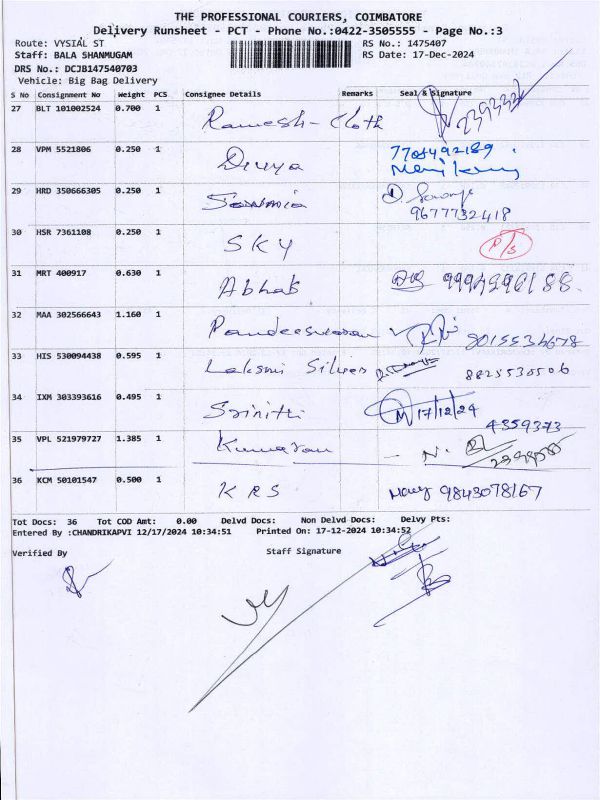 THE PROFESSIONAL COURIERS, COIMBATORE
Delivery Runsheet - PCT - Phone No.:0422-3505555 - Page No.:3
Route: VYSIAL ST RS No.: 1475407
Staff: BALA SHANMUGAM RS Date: 17-Dec-2024
DRS No.: DCJB147540703
Vehicle: Big Bag Delivery
S No Consignment No Weight PCS Consignee Details Remarks Seal & Signature
27 BLT 101002524 0.700 1 Ramesh-Cloth
28 VPM 5521806 0.250 1 Divya
29 HRD 350666305 0.250 1 9677732418
30 HSR 7361108 0.250 1 SKY P/S
31 MRT 400917 0.630 1 Abhab
32 MAA 302566643 1.160 1 Pandeeswaran
33 HIS 530094438 0.595 1 Laksmi Silver 8825530506
34 IXM 303393616 0.495 1 Srinithi 17/12/24
4359373
35 VPL 521979727 1.385 1 Kumaran
36 KCM 50101547 0.500 1 KRS 9843078167
Tot Docs: 36 Tot COD Amt: 0.00 Delvd Docs: Non Delvd Docs: Delvy Pts:
Entered By :CHANDRIKAPVI 12/17/2024 10:34:51 Printed On: 17-12-2024 10:34:52
Verified By Staff Signature